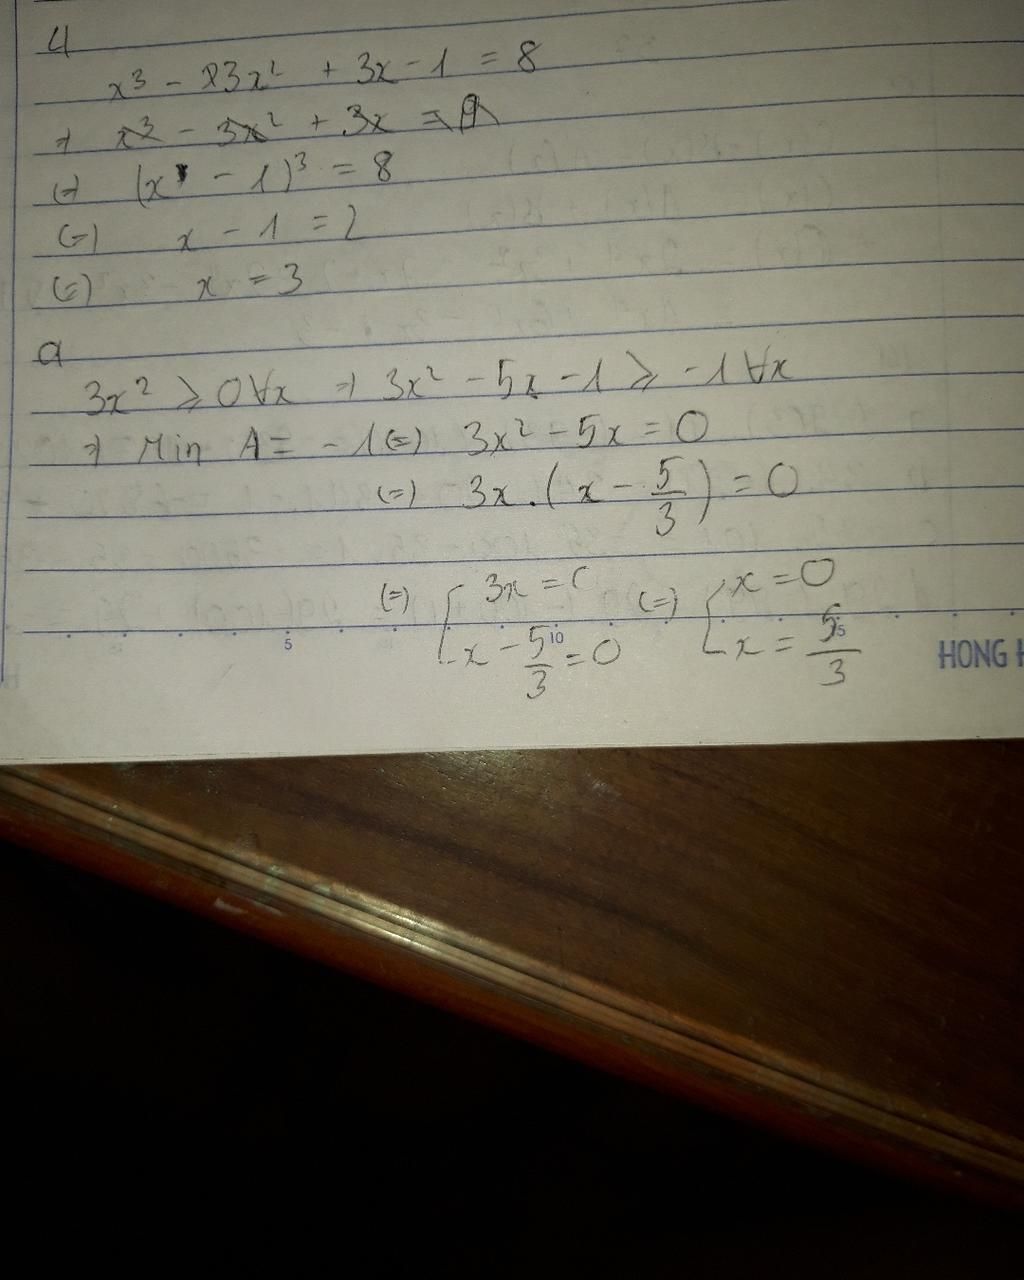 4
x³ - 3x² + 3x - 1 = 8
⇒ x³ - 3x² + 3x =
(=) (x - 1)³ = 8
(=) x - 1 = 2
(=) x = 3
a
3x² ⩾ 0 ∀x ⇒ 3x² - 5x - 1 ⩾ -1 ∀x
⇒ Min A = -1 (=) 3x² - 5x = 0
(=) 3x.(x - 5/3) = 0
(=) [ 3x = 0 (=) [ x = 0
x - 5/3 = 0 x = 5/3
5 10 15
HONG H